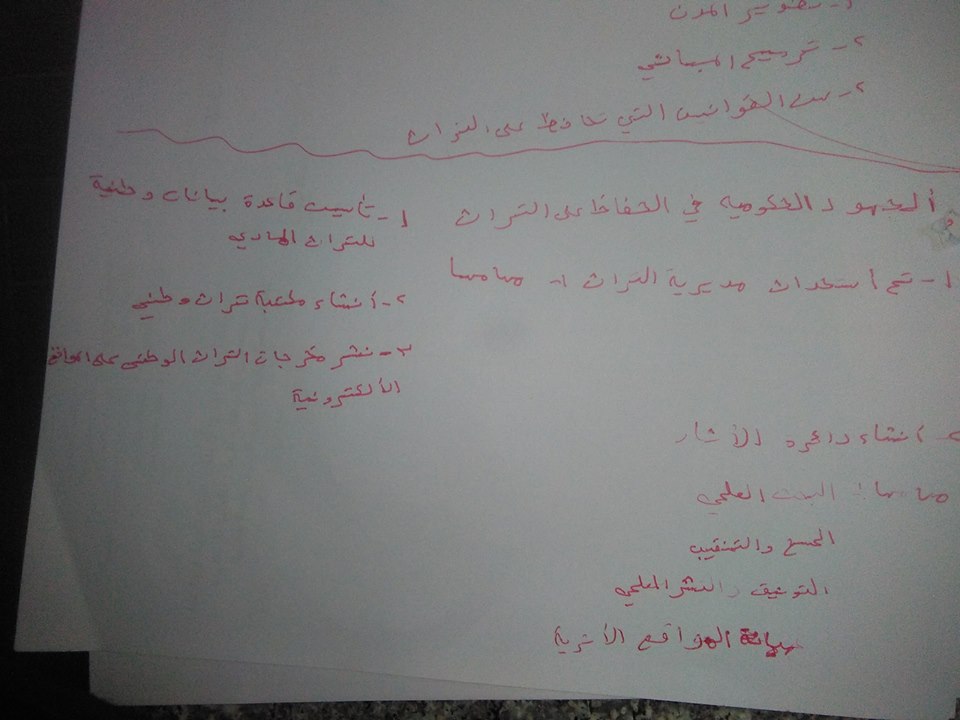 ١- تطوير المدن
٢- ترميم المباني
٣- سن القوانين التي تحافظ على التراث
الجهود الحكومية في الحفاظ على التراث
١- تم استحداث مديرية التراث :- مهامها
١- تأسيس قاعدة بيانات وطنية
للتراث المادي
٢- انشاء مكتبة تراث وطني
٣- نشر مخرجات التراث الوطني على المواقع
الألكترونية
٢- انشاء دائرة الأثار
مهامها: البحث العلمي
المسح والتنقيب
التوثيق والنشر العلمي
صيانة المواقع الأثرية